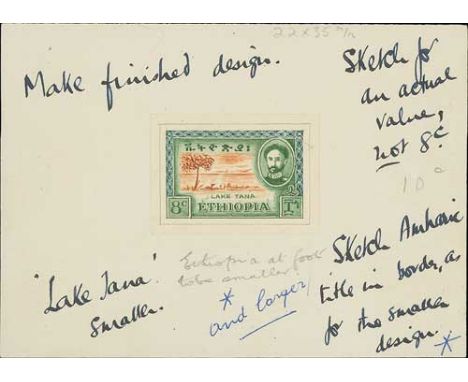 22 x 35 m/m
Make finished design.
Sketch for
an actual
value,
not 8c
10c
ኢትዮጵያ
LAKE TANA
8c
ETHIOPIA
'Lake Tana'
smaller.
Ethiopia at foot
to be smaller
*
and larger,
Sketch Amharic
title in border, as
for the smaller
design.
*